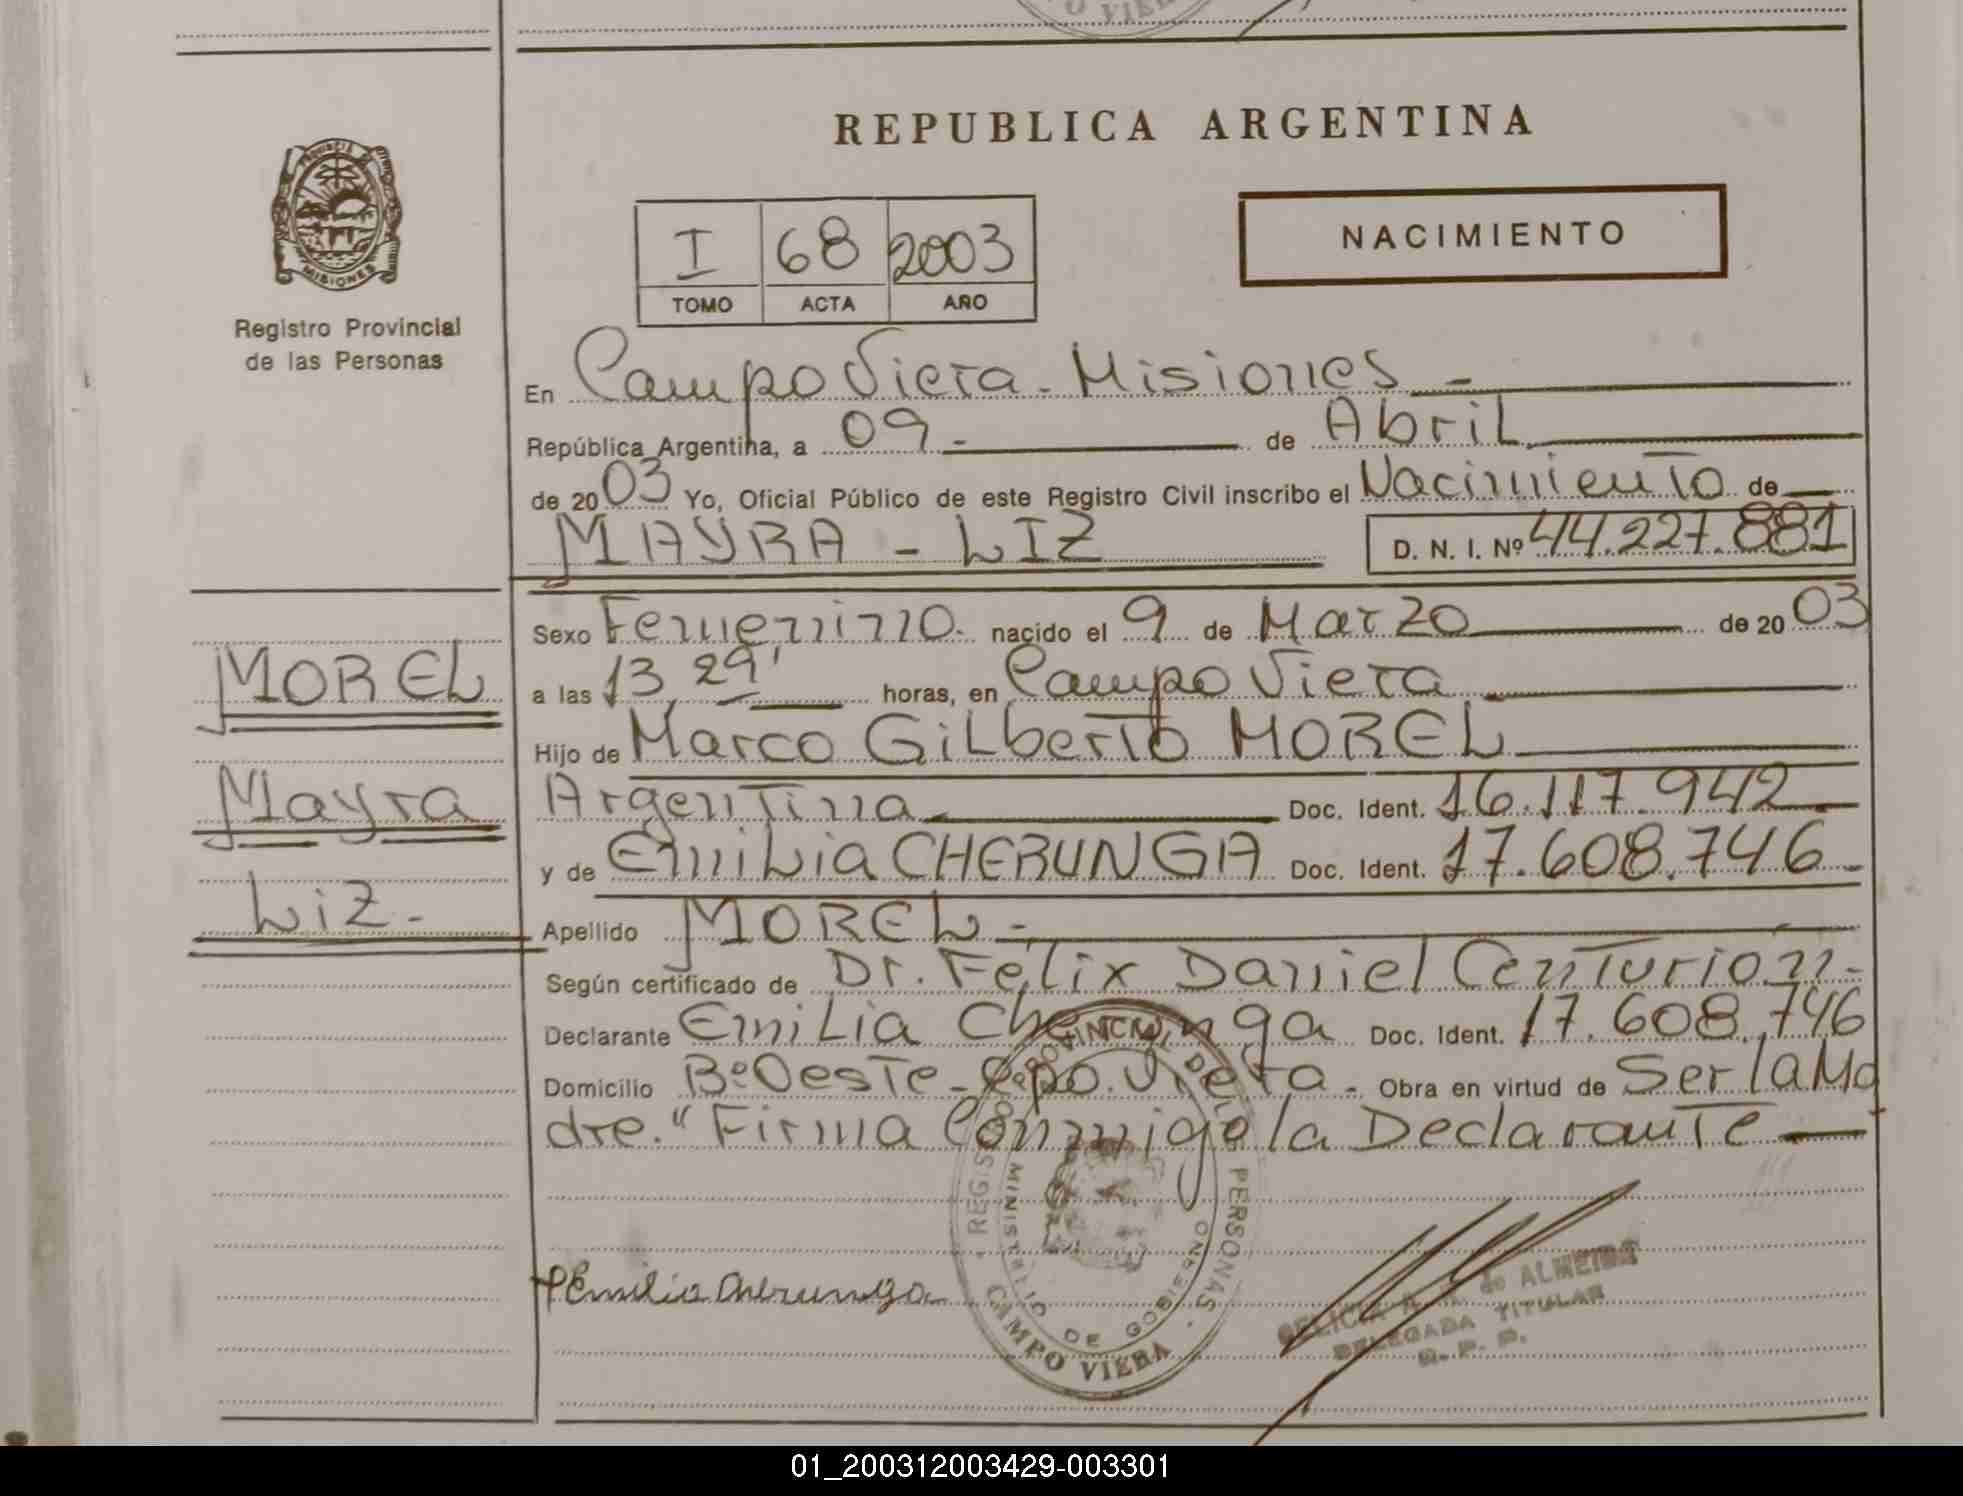 REPUBLICA ARGENTINA
PROVINCIA DE
MISIONES
Registro Provincial
de las Personas
I 68 2003
TOMO ACTA AÑO
NACIMIENTO
En Campo Viera - Misiones -
República Argentina, a 09 - de Abril
de 2003 Yo, Oficial Público de este Registro Civil inscribo el Nacimiento de
MAYRA - LIZ D. N. I. Nº 44.227.881
Sexo Femenino. nacido el 9 de Marzo de 2003
a las 13 29' horas, en Campo Viera
Hijo de Marco Gilberto MOREL
Argentina Doc. Ident. 16.117.942
y de Emilia CHERUNGA Doc. Ident. 17.608.746
Apellido MOREL -
Según certificado de Dr. Félix Daniel Centurión.-
Declarante Emilia Cherunga Doc. Ident. 17.608.746
Domicilio Bº Oeste - Cpo. Viera - Obra en virtud de Ser la Ma
dre." Firma Conmigo la Declarante
MOREL
Mayra
Liz -
Emilia Cherunga
REGISTRO PROVINCIAL DE LAS PERSONAS
MINISTERIO DE GOBIERNO
CAMPO VIERA
de ALMEIDA
DELEGADA TITULAR
R. P. P.
01_200312003429-003301